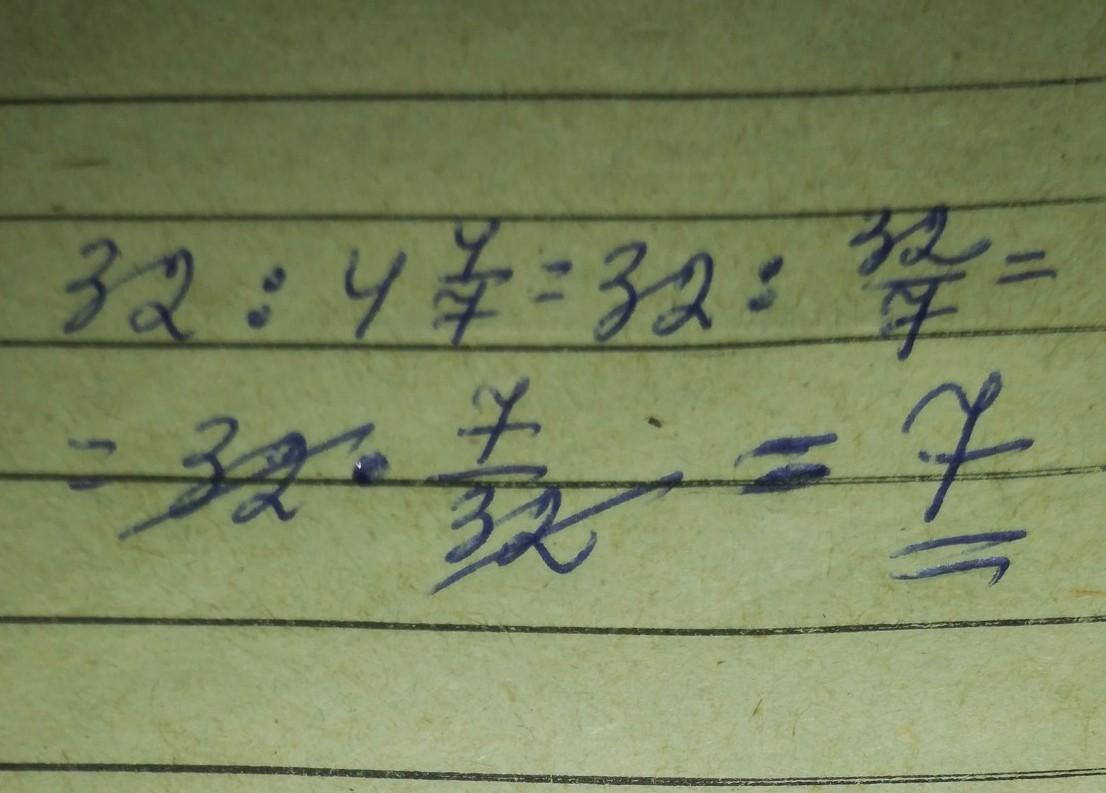 32 : 4 4/7 = 32 : 32/7 =
= 32 · 7/32 = 7